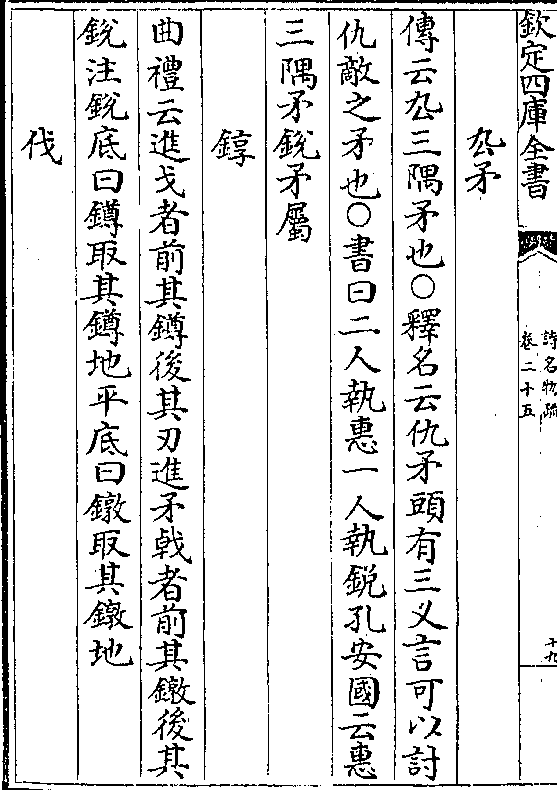 欽定四庫全書
詩名物疏
卷二十五
十九
厹矛
傳云厹三隅矛也○釋名云仇矛頭有三义言可以討
仇敵之矛也○書曰二人執惠一人執鋭孔安國云惠
三隅矛鋭矛屬
錞
曲禮云進戈者前其鐏後其刃進矛戟者前其鐓後其
鋭注鋭底曰鐏取其鐏地平底曰鐓取其鐓地
伐